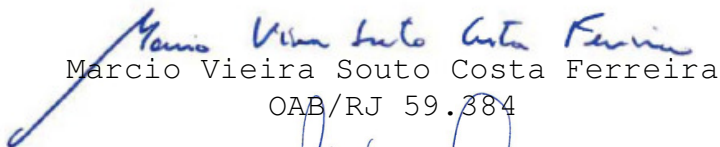 Marcio Vieira Souto Costa Ferreira
Marcio Vieira Souto Costa Ferreira
OAB/RJ 59.384